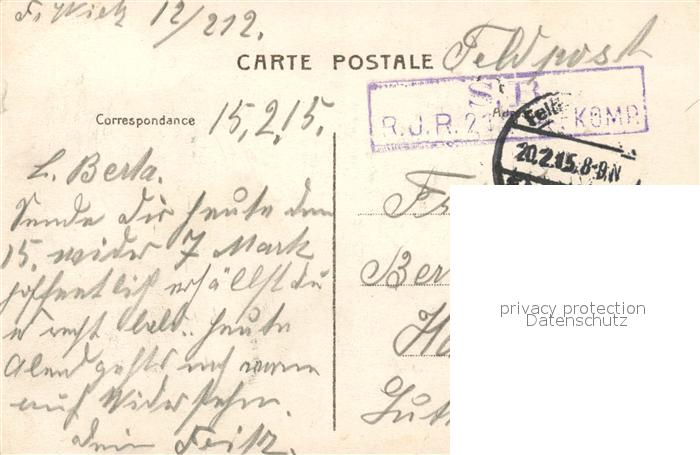 12/212.
CARTE POSTALE Feldpost
S. B.
R.J.R. 2 KOMP.
Correspondance 15.2.15.
20.2.15.8-9.N
L. Berta.
Sende dir heute den
15. wider 7 Mark
hoffentlich erhällst du
recht bald. heute
Abend gehts
auf Widersehn.
Dein Fritz.
Fr
Ber
Ha
privacy protection
Datenschutz